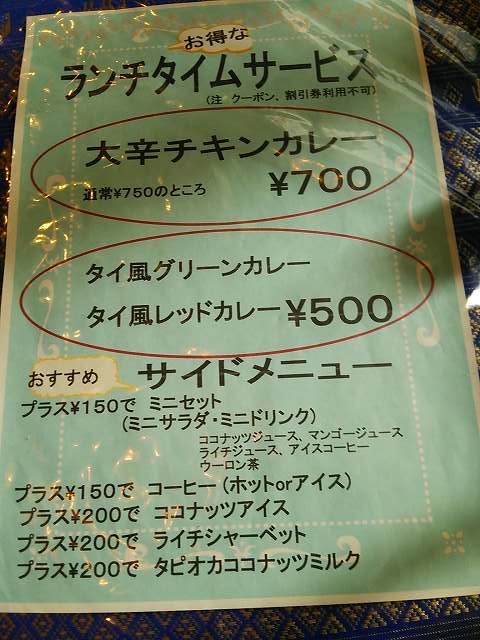 お得な
ランチタイムサービス
(注 クーポン、割引券利用不可)
大辛チキンカレー
通常¥750のところ ¥700
タイ風グリーンカレー
タイ風レッドカレー ¥500
おすすめ サイドメニュー
プラス¥150で ミニセット
(ミニサラダ・ミニドリンク)
ココナッツジュース、マンゴージュース
ライチジュース、アイスコーヒー
ウーロン茶
プラス¥150で コーヒー(ホットorアイス)
プラス¥200で ココナッツアイス
プラス¥200で ライチシャーベット
プラス¥200で タピオカココナッツミルク